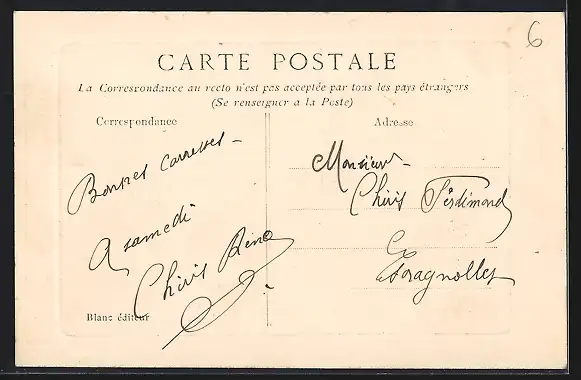 6
CARTE POSTALE
La Correspondance au recto n'est pas acceptée par tous les pays étrangers
(Se renseigner à la Poste)
Correspondance
Adresse
Bonnes Caresses –
A samedi
Chiris René
Monsieur –
Chiris Ferdinand
Escragnolles
Blanc éditeur